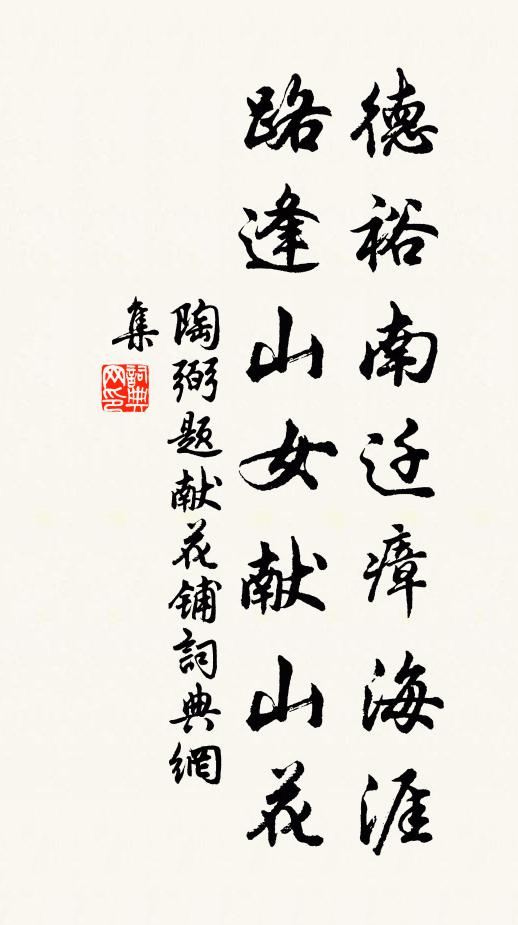 德裕南迁瘴海涯
路逢山女献山花
陶弼题献花铺詞典網
集
詞典
网印